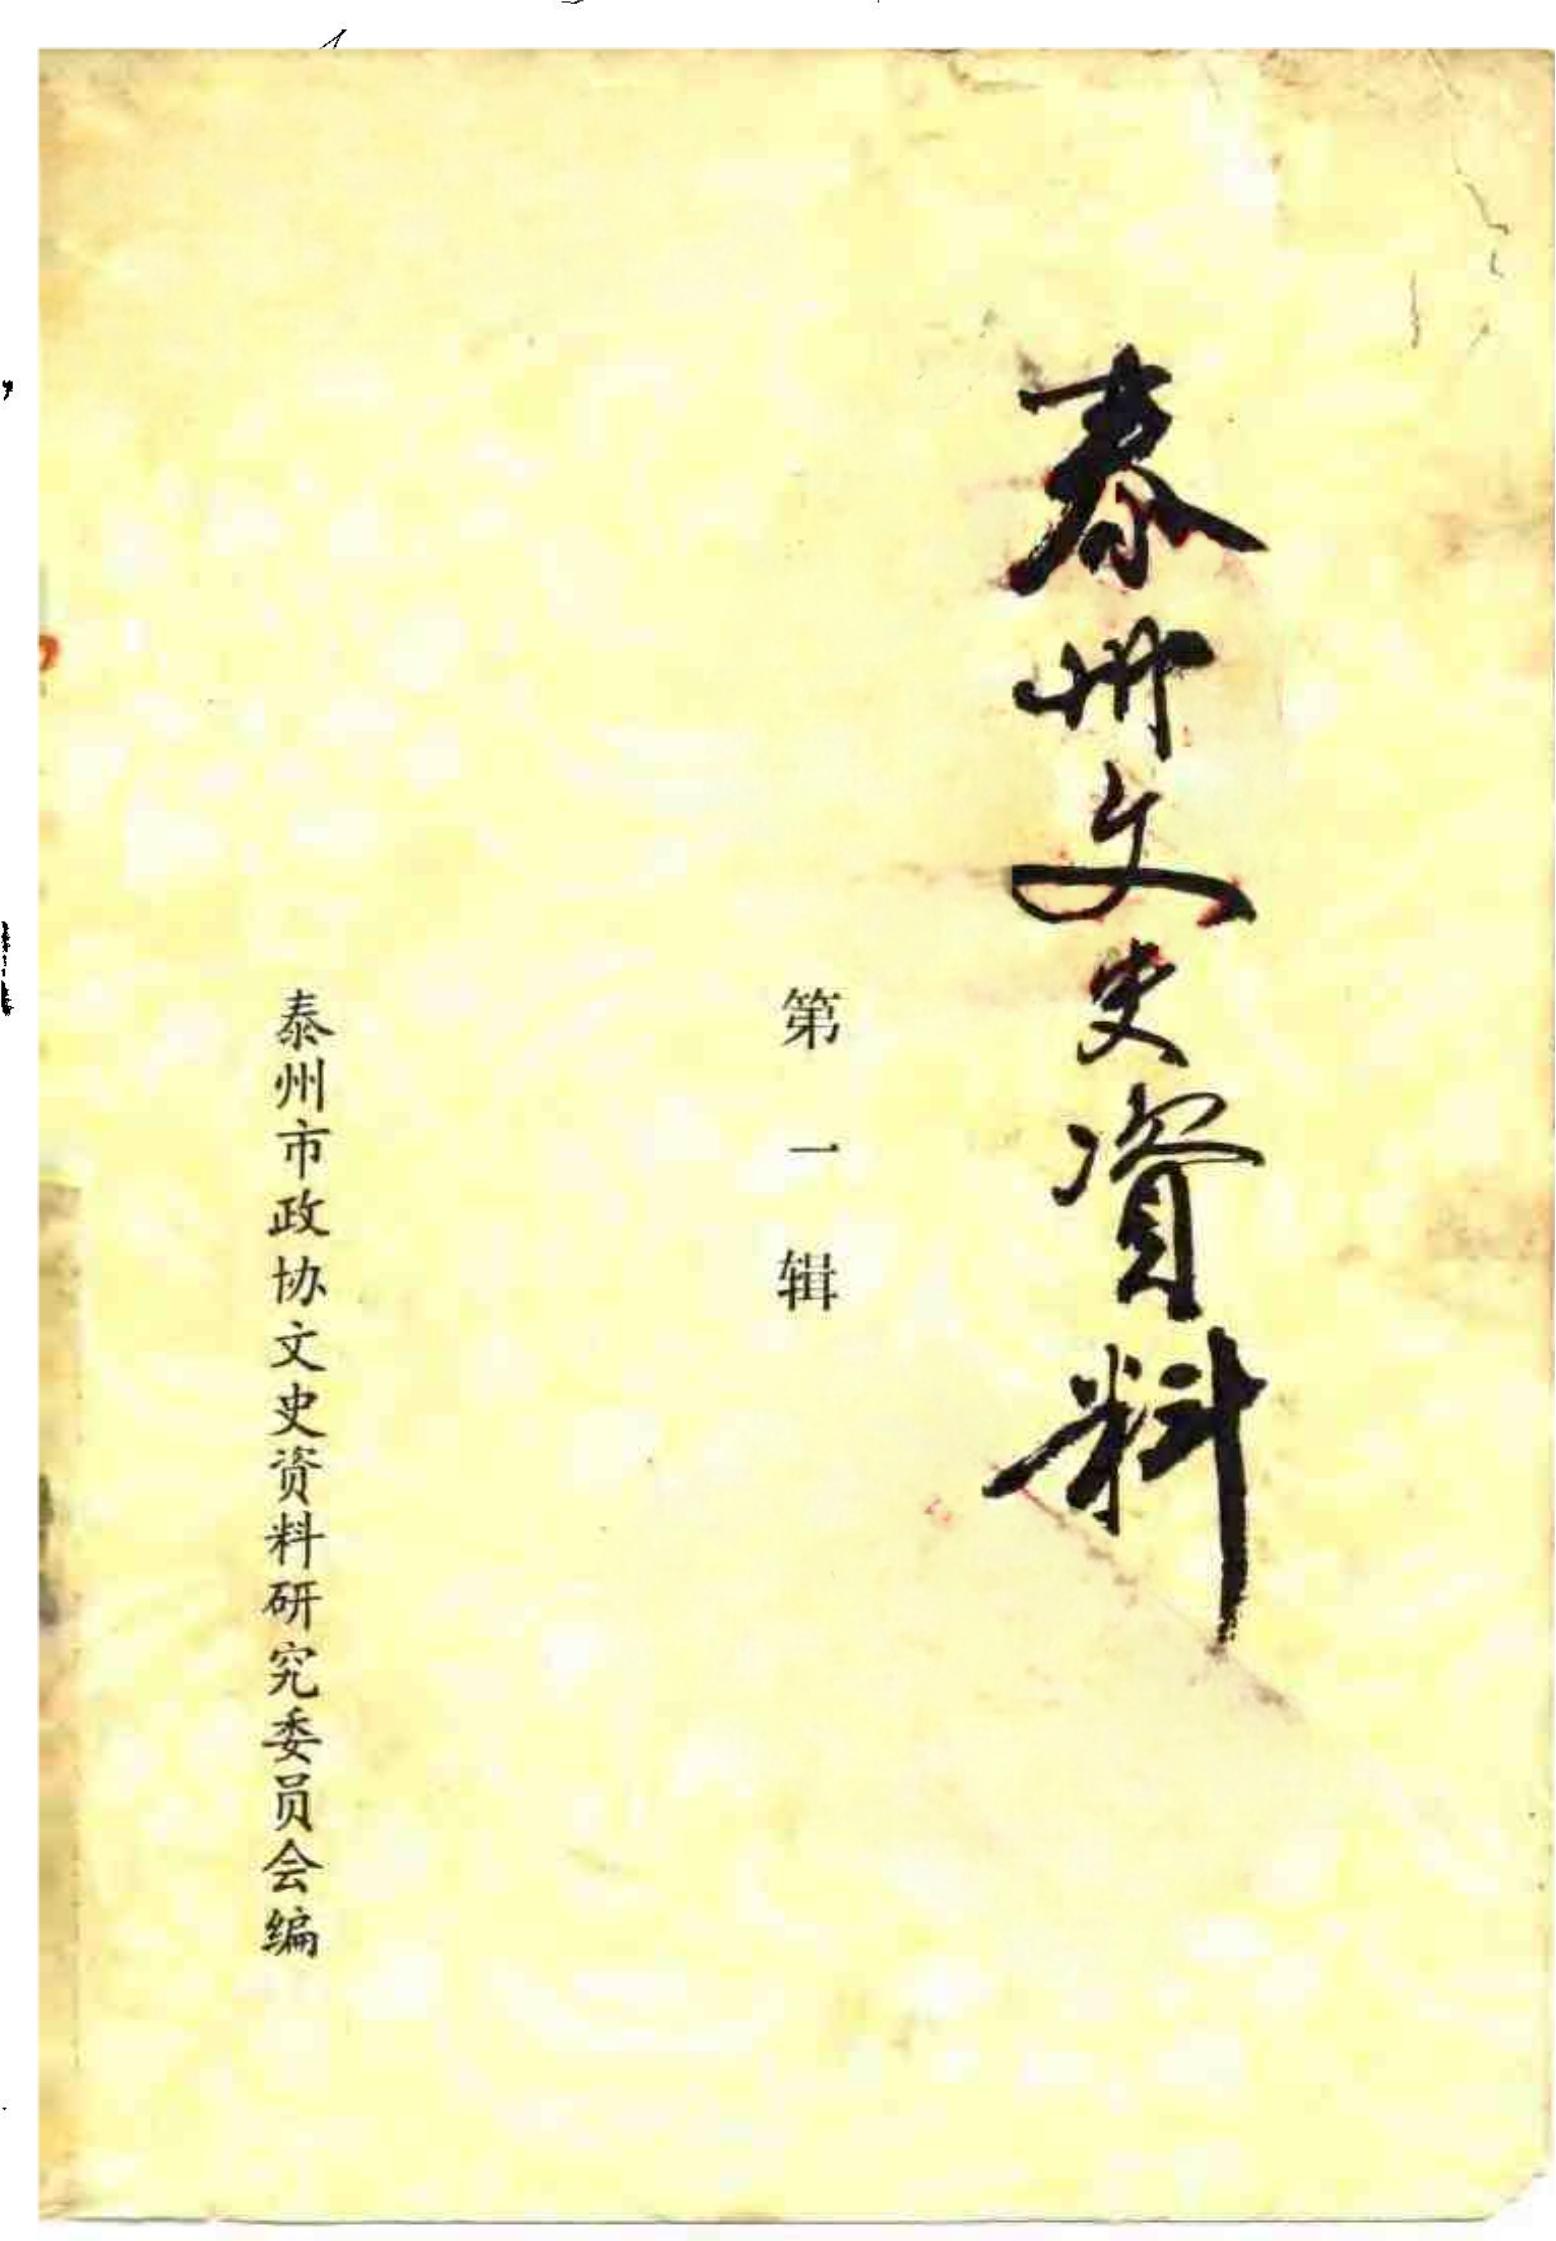 泰州文史資料
第一辑
泰州市政协文史资料研究委员会编